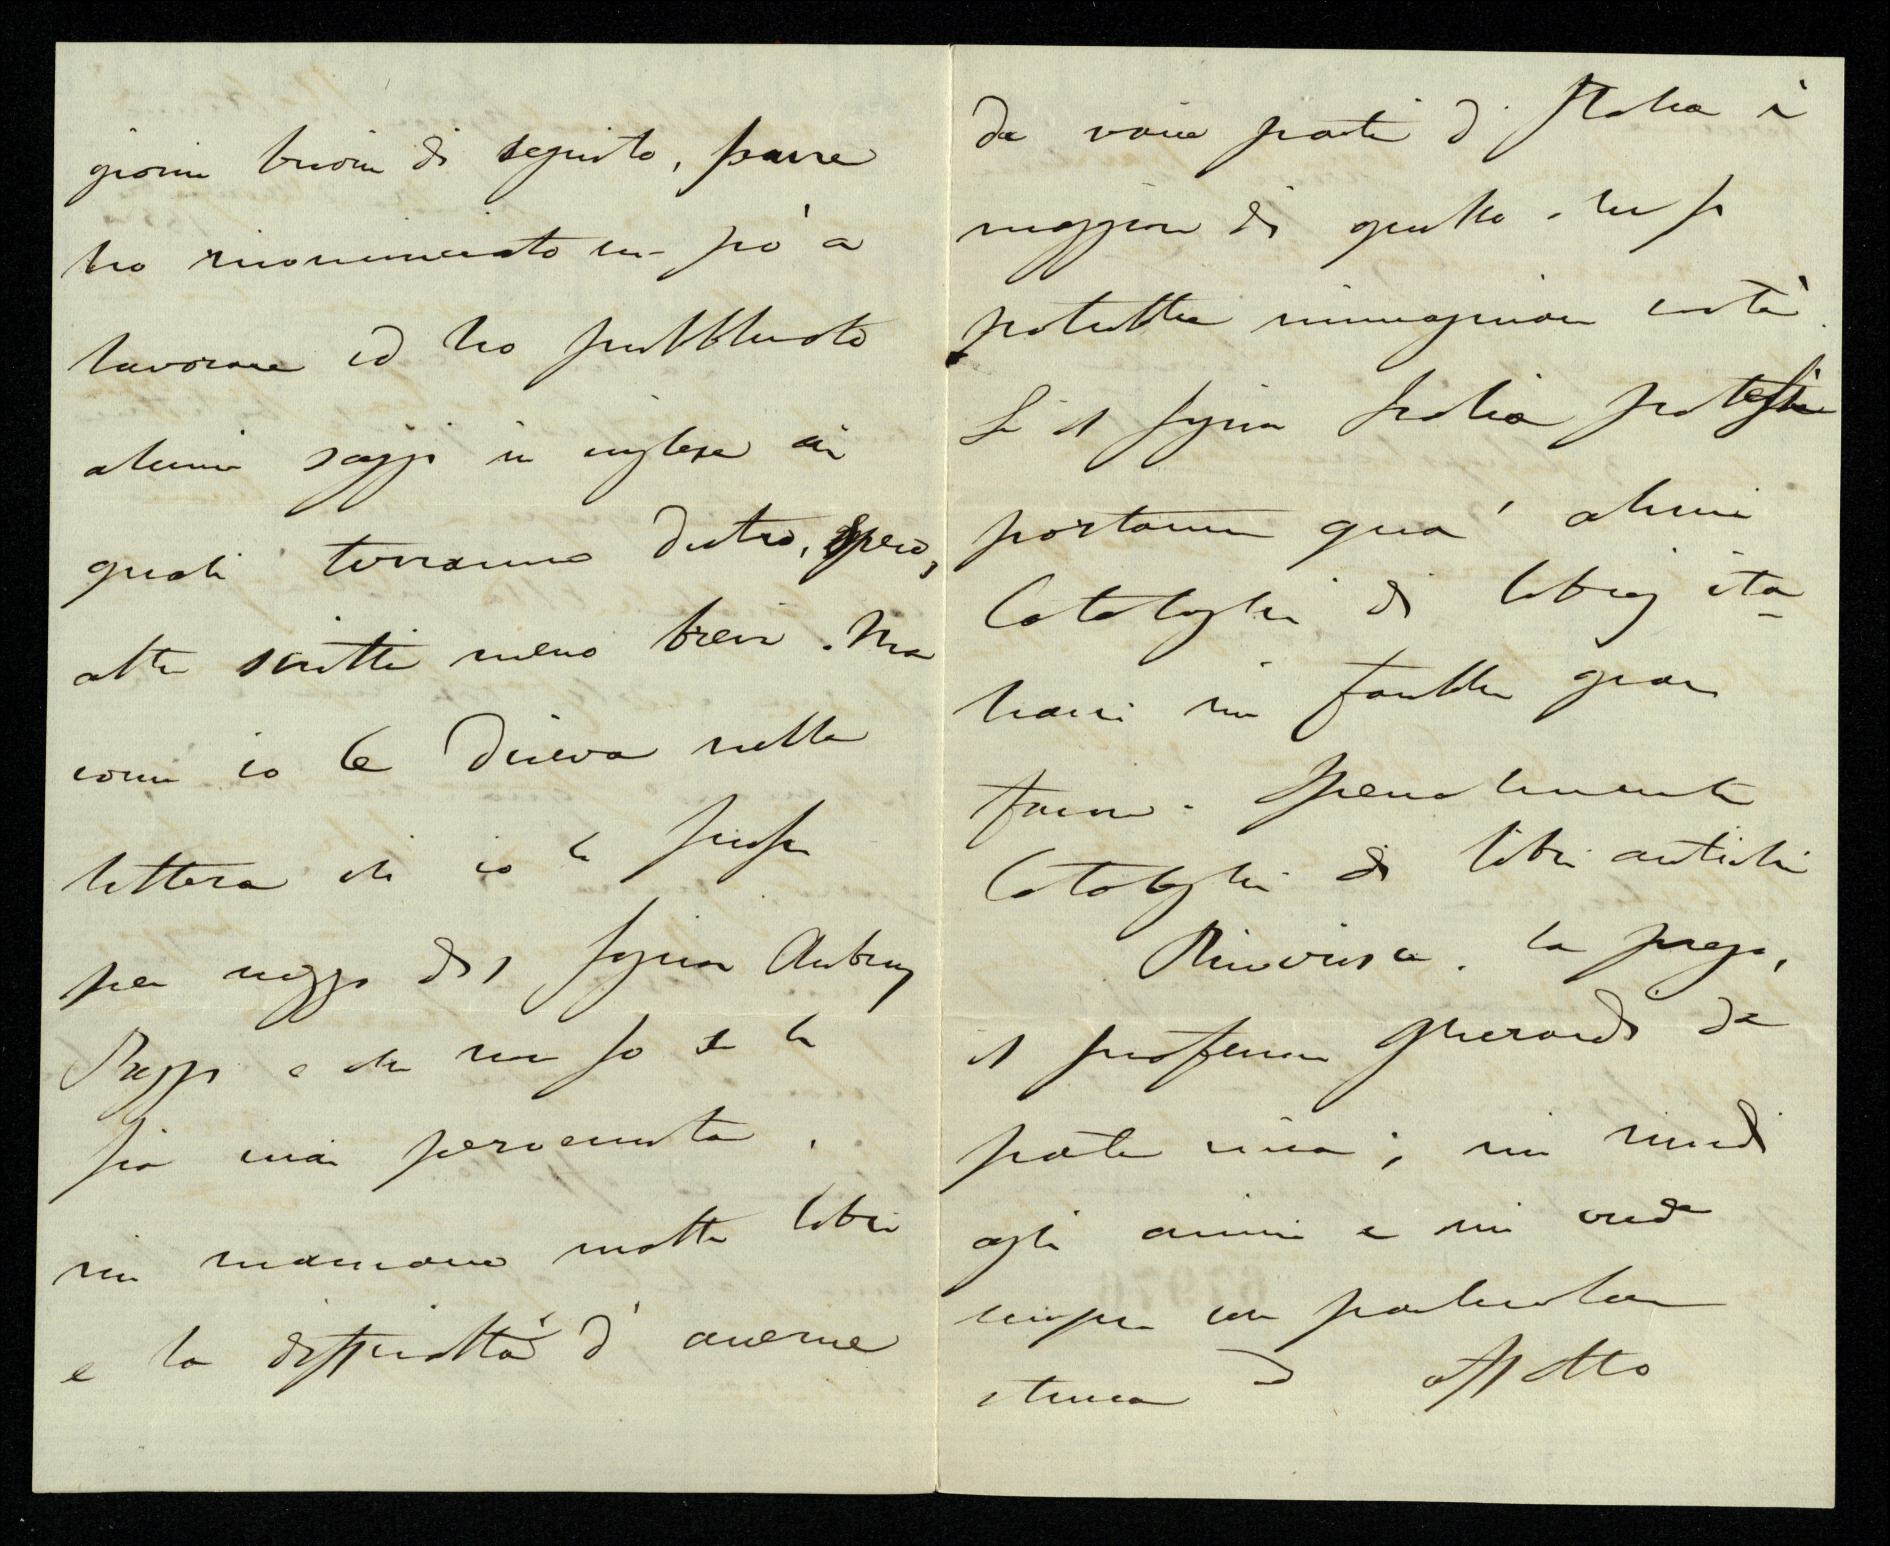 giorni buoni di seguito, pure
ho rincominciato un pò a
lavorare ed ho pubblicato
alcuni saggi in inglese ai
quali terranno dietro, spero,
altri scritti meno brevi. Ma
come io le diceva nella
lettera che io le scrissi
per mezzo del Signor Aubrey
Bezzi e che non so se le
sia mai pervenuta,
mi mancano molti libri
e la difficoltà d' averne
da varie parti d' Italia è
maggiore di quello che si
potrebbe immaginare costà.
Se il Signor potesse
portarmi quà alcuni
Cataloghi di libraj ita-
liani mi farebbe gran
favore. Specialmente
Cataloghi di libri antichi
Riverisca, la prego,
il professor Gherardi da
parte mia; mi ricordi
agli amici e mi creda
sempre con particolar
stima ed affetto